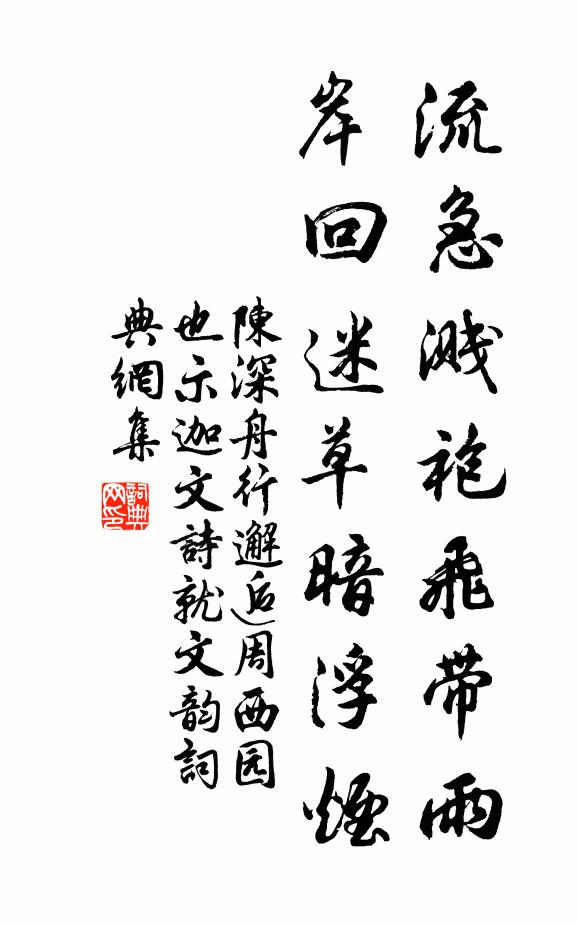 流急溅袍飛帶雨
岸回迷草暗浮煙
陳深舟行邂逅周西园
也示迦文詩就文韵詞
典網集
詞典
网印